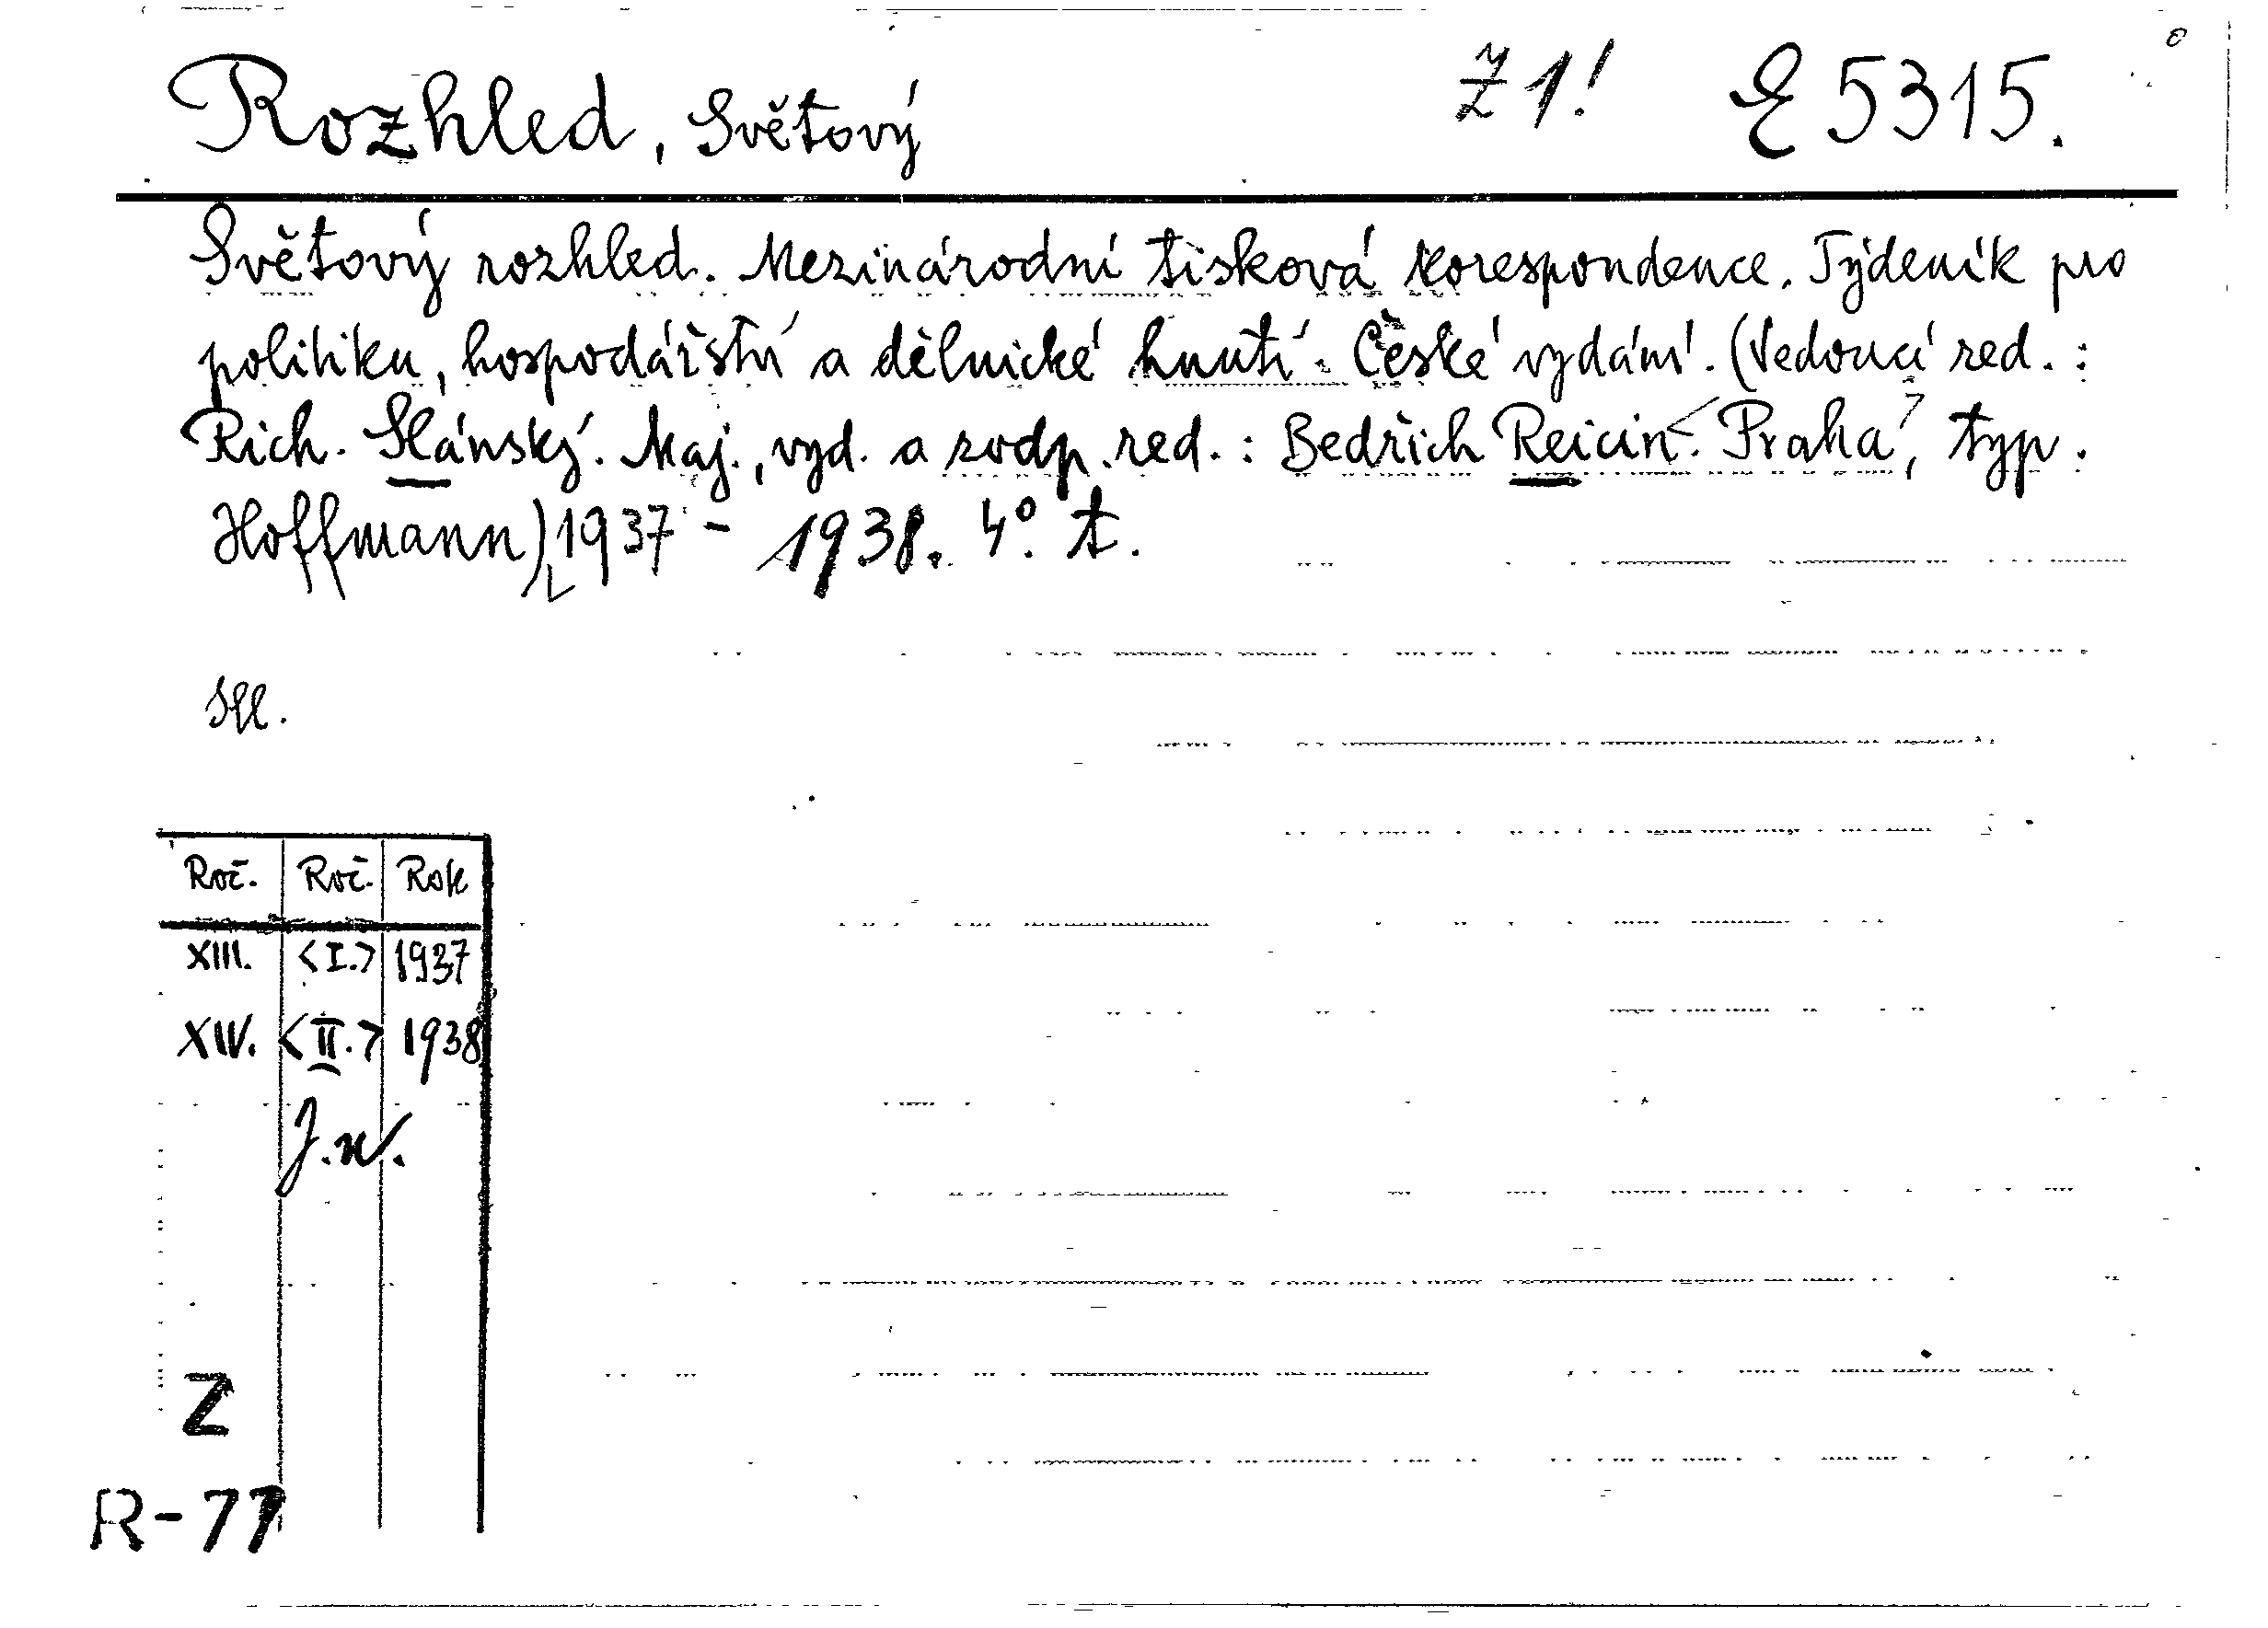 Rozhled, Světový Z 1! E 5315.
Světový rozhled. Mezinárodní tisková korespondence. Týdeník pro
politiku, hospodářství a dělnické hnutí. České vydání. (Vedoucí red.:
Rich. Slánský. Maj., vyd. a zodp. red.: Bedřich Reicin. Praha, typ.
Hoffmann) 1937 - 1938. 4°. t.
Roč. Roč. Rok
XIII. <I.> 1937
XIV. <II.> 1938
J.n.
Z
R-77